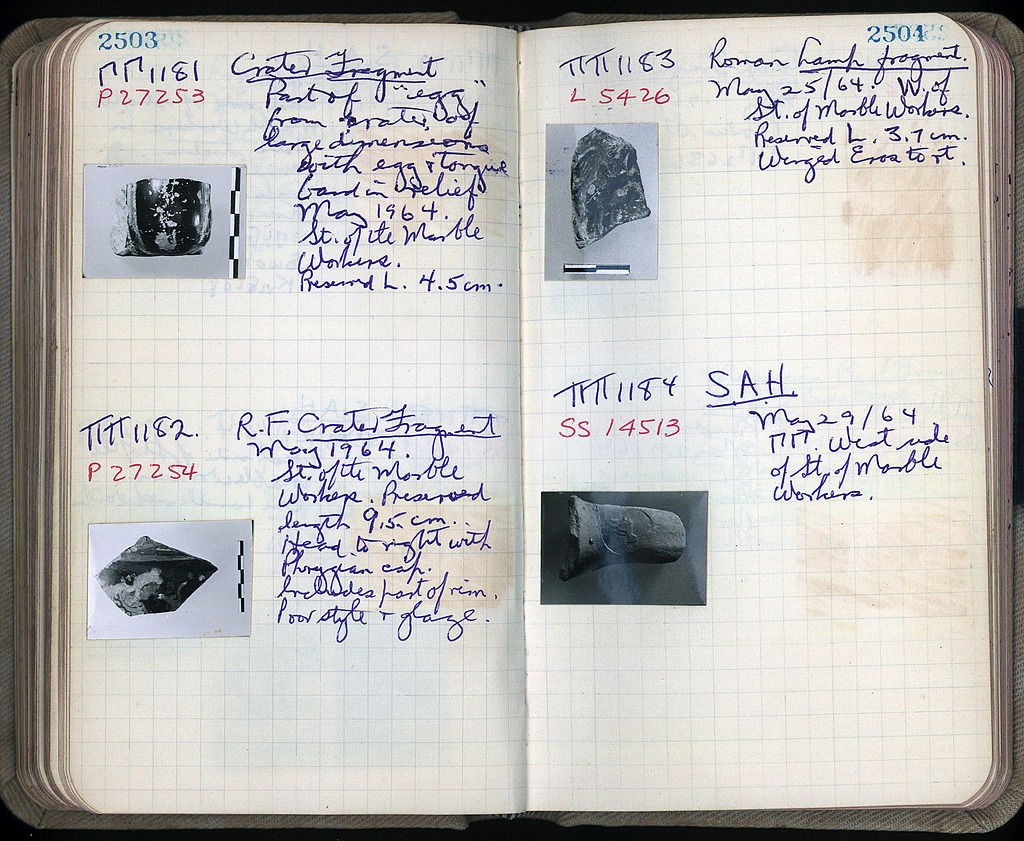 2503
ΠΠ 1181 Crater Fragment
P 27253 Part of "egg"
from crater, of
large dimensions
with egg & tongue
band in relief
May 1964.
St. of the Marble
Workers.
Preserved L. 4.5 cm.
ΠΠ 1182. R.F. Crater Fragment
P 27254 May 1964.
St. of the Marble
Workers. Preserved
length 9.5. cm.
Head to right with
Phrygian cap.
Includes part of rim.
Poor style & glaze.
2504
ΠΠ 1183 Roman Lamp fragment.
L 5426 May 25/64. W. of
St. of Marble Workers.
Preserved L. 3.7 cm.
Winged Eros to rt.
ΠΠ 1184 S.A.H.
SS 14513 May 29/64
ΠΠ. West side
of St. of Marble
Workers.